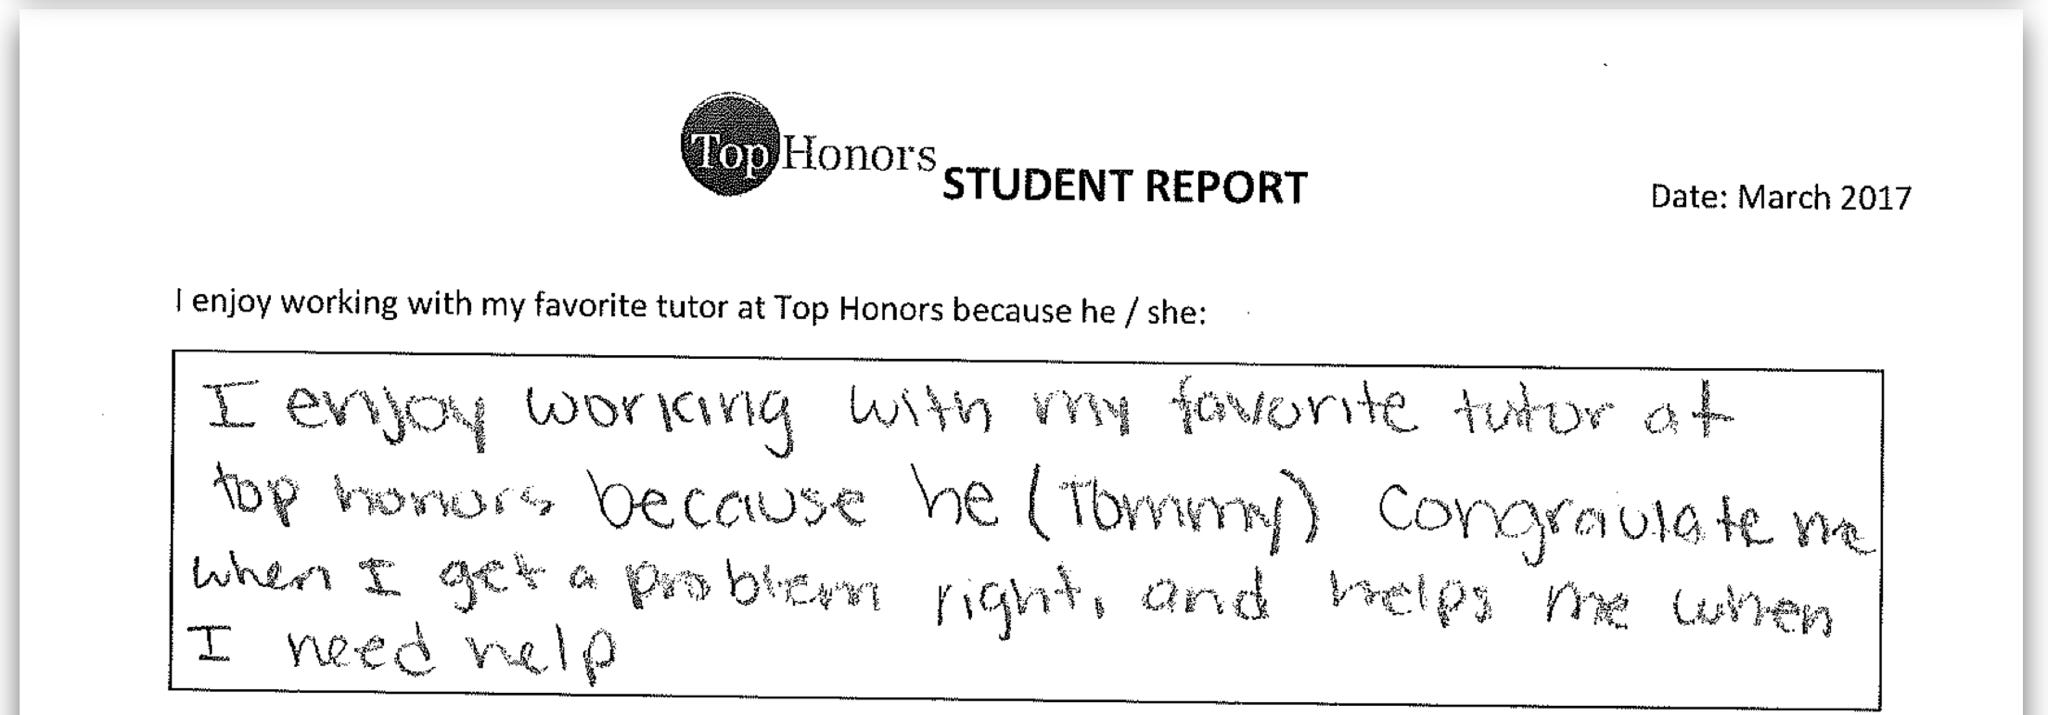 Top Honors STUDENT REPORT
Date: March 2017
I enjoy working with my favorite tutor at Top Honors because he / she:
I enjoy working with my favorite tutor at
top honors because he (Tommy) congraulate me
when I get a problem right, and helps me when
I need help